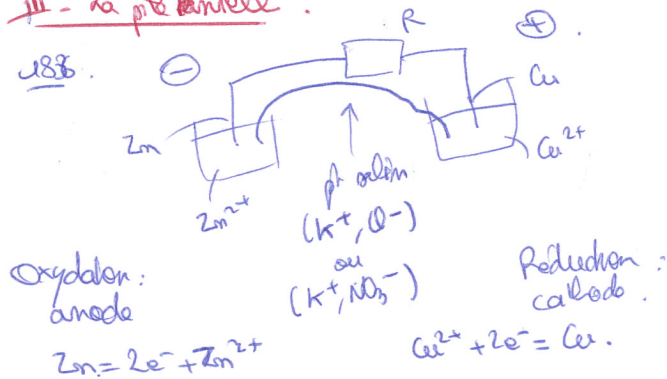 III - La pile Daniell.
1836.
⊖
R
⊕.
Zn
Cu
Zn²⁺
Cu²⁺
pt salin
(K⁺, Cl⁻)
ou
(K⁺, NO₃⁻)
Oxydation :
anode
Zn = 2e⁻ + Zn²⁺
Réduction :
cathode.
Cu²⁺ + 2e⁻ = Cu.